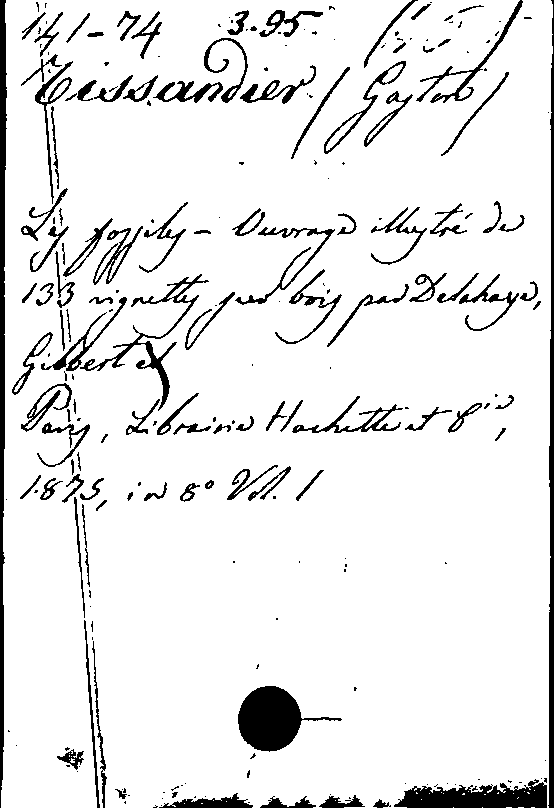 141-74 3.95.
Tissandier (Gaston)
Les fossiles - Ouvrage illustré de
133 vignettes sur bois par Delahaye,
Gilbert et
Paris, Librairie Hachette et Cie,
1875, in 8° Vol. 1